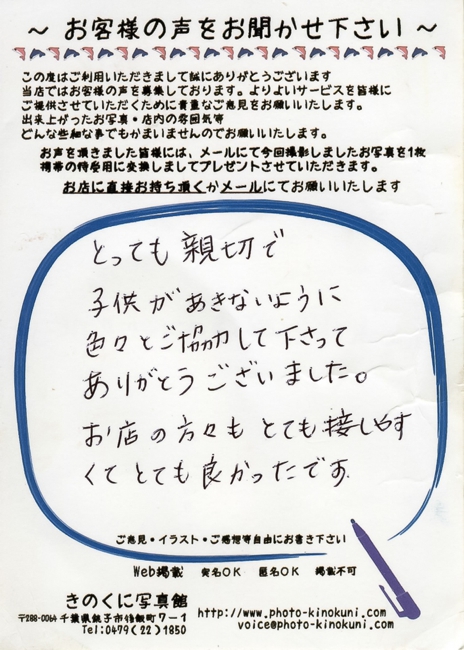 ～ お客様の声をお聞かせ下さい ～
この度はご利用いただきまして誠にありがとうございます
当店ではお客様の声を募集しております。よりよいサービスを皆様に
ご提供させていただくために貴重なご意見をお願いいたします。
出来上がったお写真・店内の雰囲気等
どんな些細な事でもかまいませんのでお願いいたします。
お声を頂きました皆様には、メールにて今回撮影しましたお写真を1枚
携帯の待受用に変換しましてプレゼントさせていただきます。
お店に直接お持ち頂くかメールにてお願いいたします
とっても親切で
子供があきないように
色々とご協力して下さって
ありがとうございました。
お店の方々もとても接しやす
くてとても良かったです
ご意見・イラスト・ご感想等自由にお書き下さい
Web掲載 実名OK 匿名OK 掲載不可
きのくに写真館
〒288-0064 千葉県銚子市猿田町7－1
Tel:0479(22)1850
http://www.photo-kinokuni.com
voice@photo-kinokuni.com